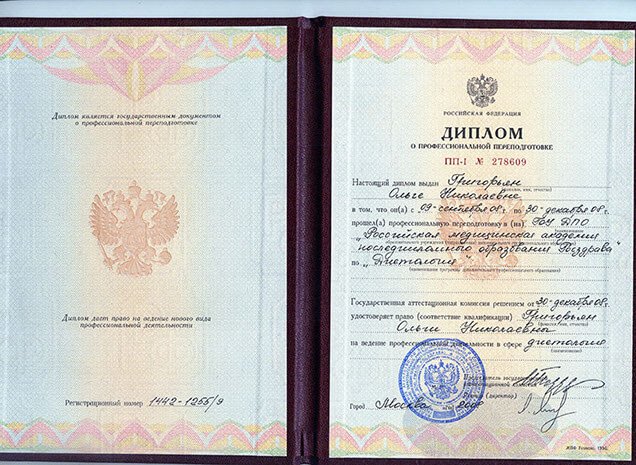 Диплом является государственным документом
о профессиональной переподготовке
Диплом дает право на ведение нового вида
профессиональной деятельности
Регистрационный номер 1442-1255/9
РОССИЙСКАЯ ФЕДЕРАЦИЯ
ДИПЛОМ
О ПРОФЕССИОНАЛЬНОЙ ПЕРЕПОДГОТОВКЕ
ПП-I № 278609
Настоящий диплом выдан Григорьян
(фамилия, имя, отчество)
Ольге Николаевне
в том, что он(а) с 09-сентября 08г. по 30-декабря 08г.
прошел(а) профессиональную переподготовку в (на) ГОУ ДПО
"Российская медицинская академия
последипломного образования Росздрава"
по "Диетология"
(наименование программы дополнительного профессионального образования)
Государственная аттестационная комиссия решением от 30-декабря 08г.
удостоверяет право (соответствие квалификации) Григорьян
(фамилия, имя, отчество)
Ольги Николаевны
на ведение профессиональной деятельности в сфере диетология
(наименование)
Председатель государственной
аттестационной комиссии
Ректор (директор)
Город Москва 2008